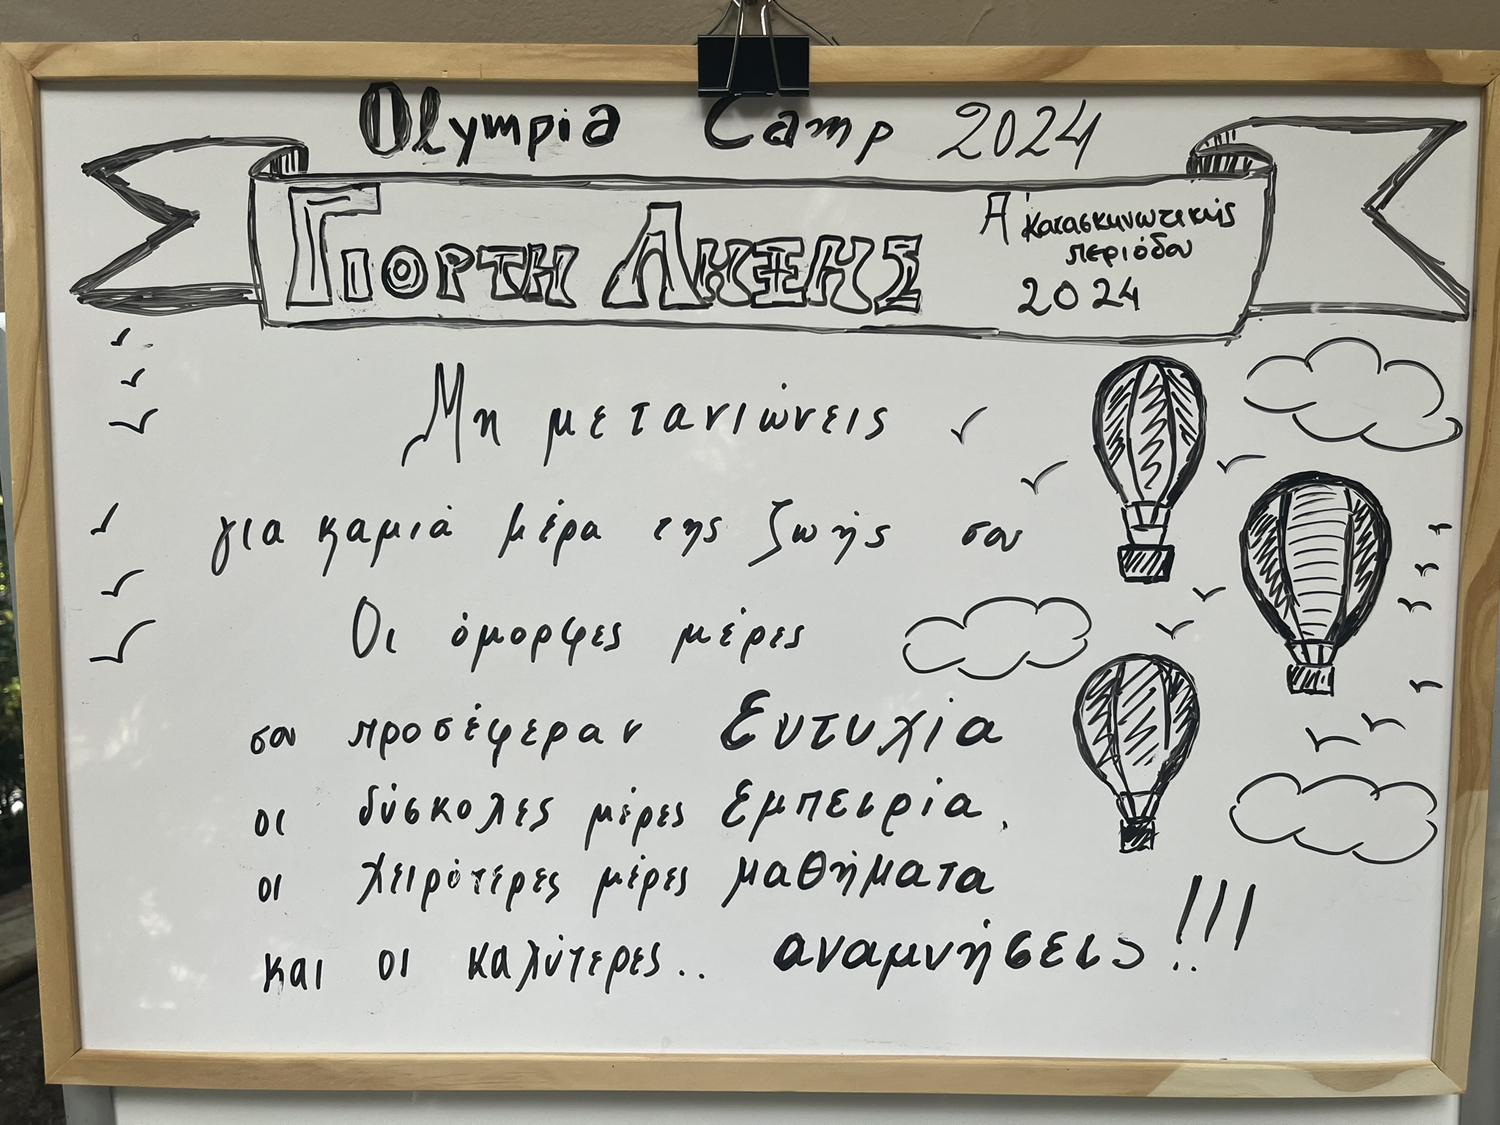 Olympia Camp 2024
ΓΙΟΡΤΗ ΛΗΞΗΣ
Α' κατασκηνωτικής
περιόδου
2024
Μη μετανιώνεις
για καμιά μέρα της ζωής σου
Οι όμορφες μέρες
σου προσέφεραν Ευτυχία
οι δύσκολες μέρες Εμπειρία,
οι χειρότερες μέρες μαθήματα
και οι καλύτερες.. αναμνήσεις!!!